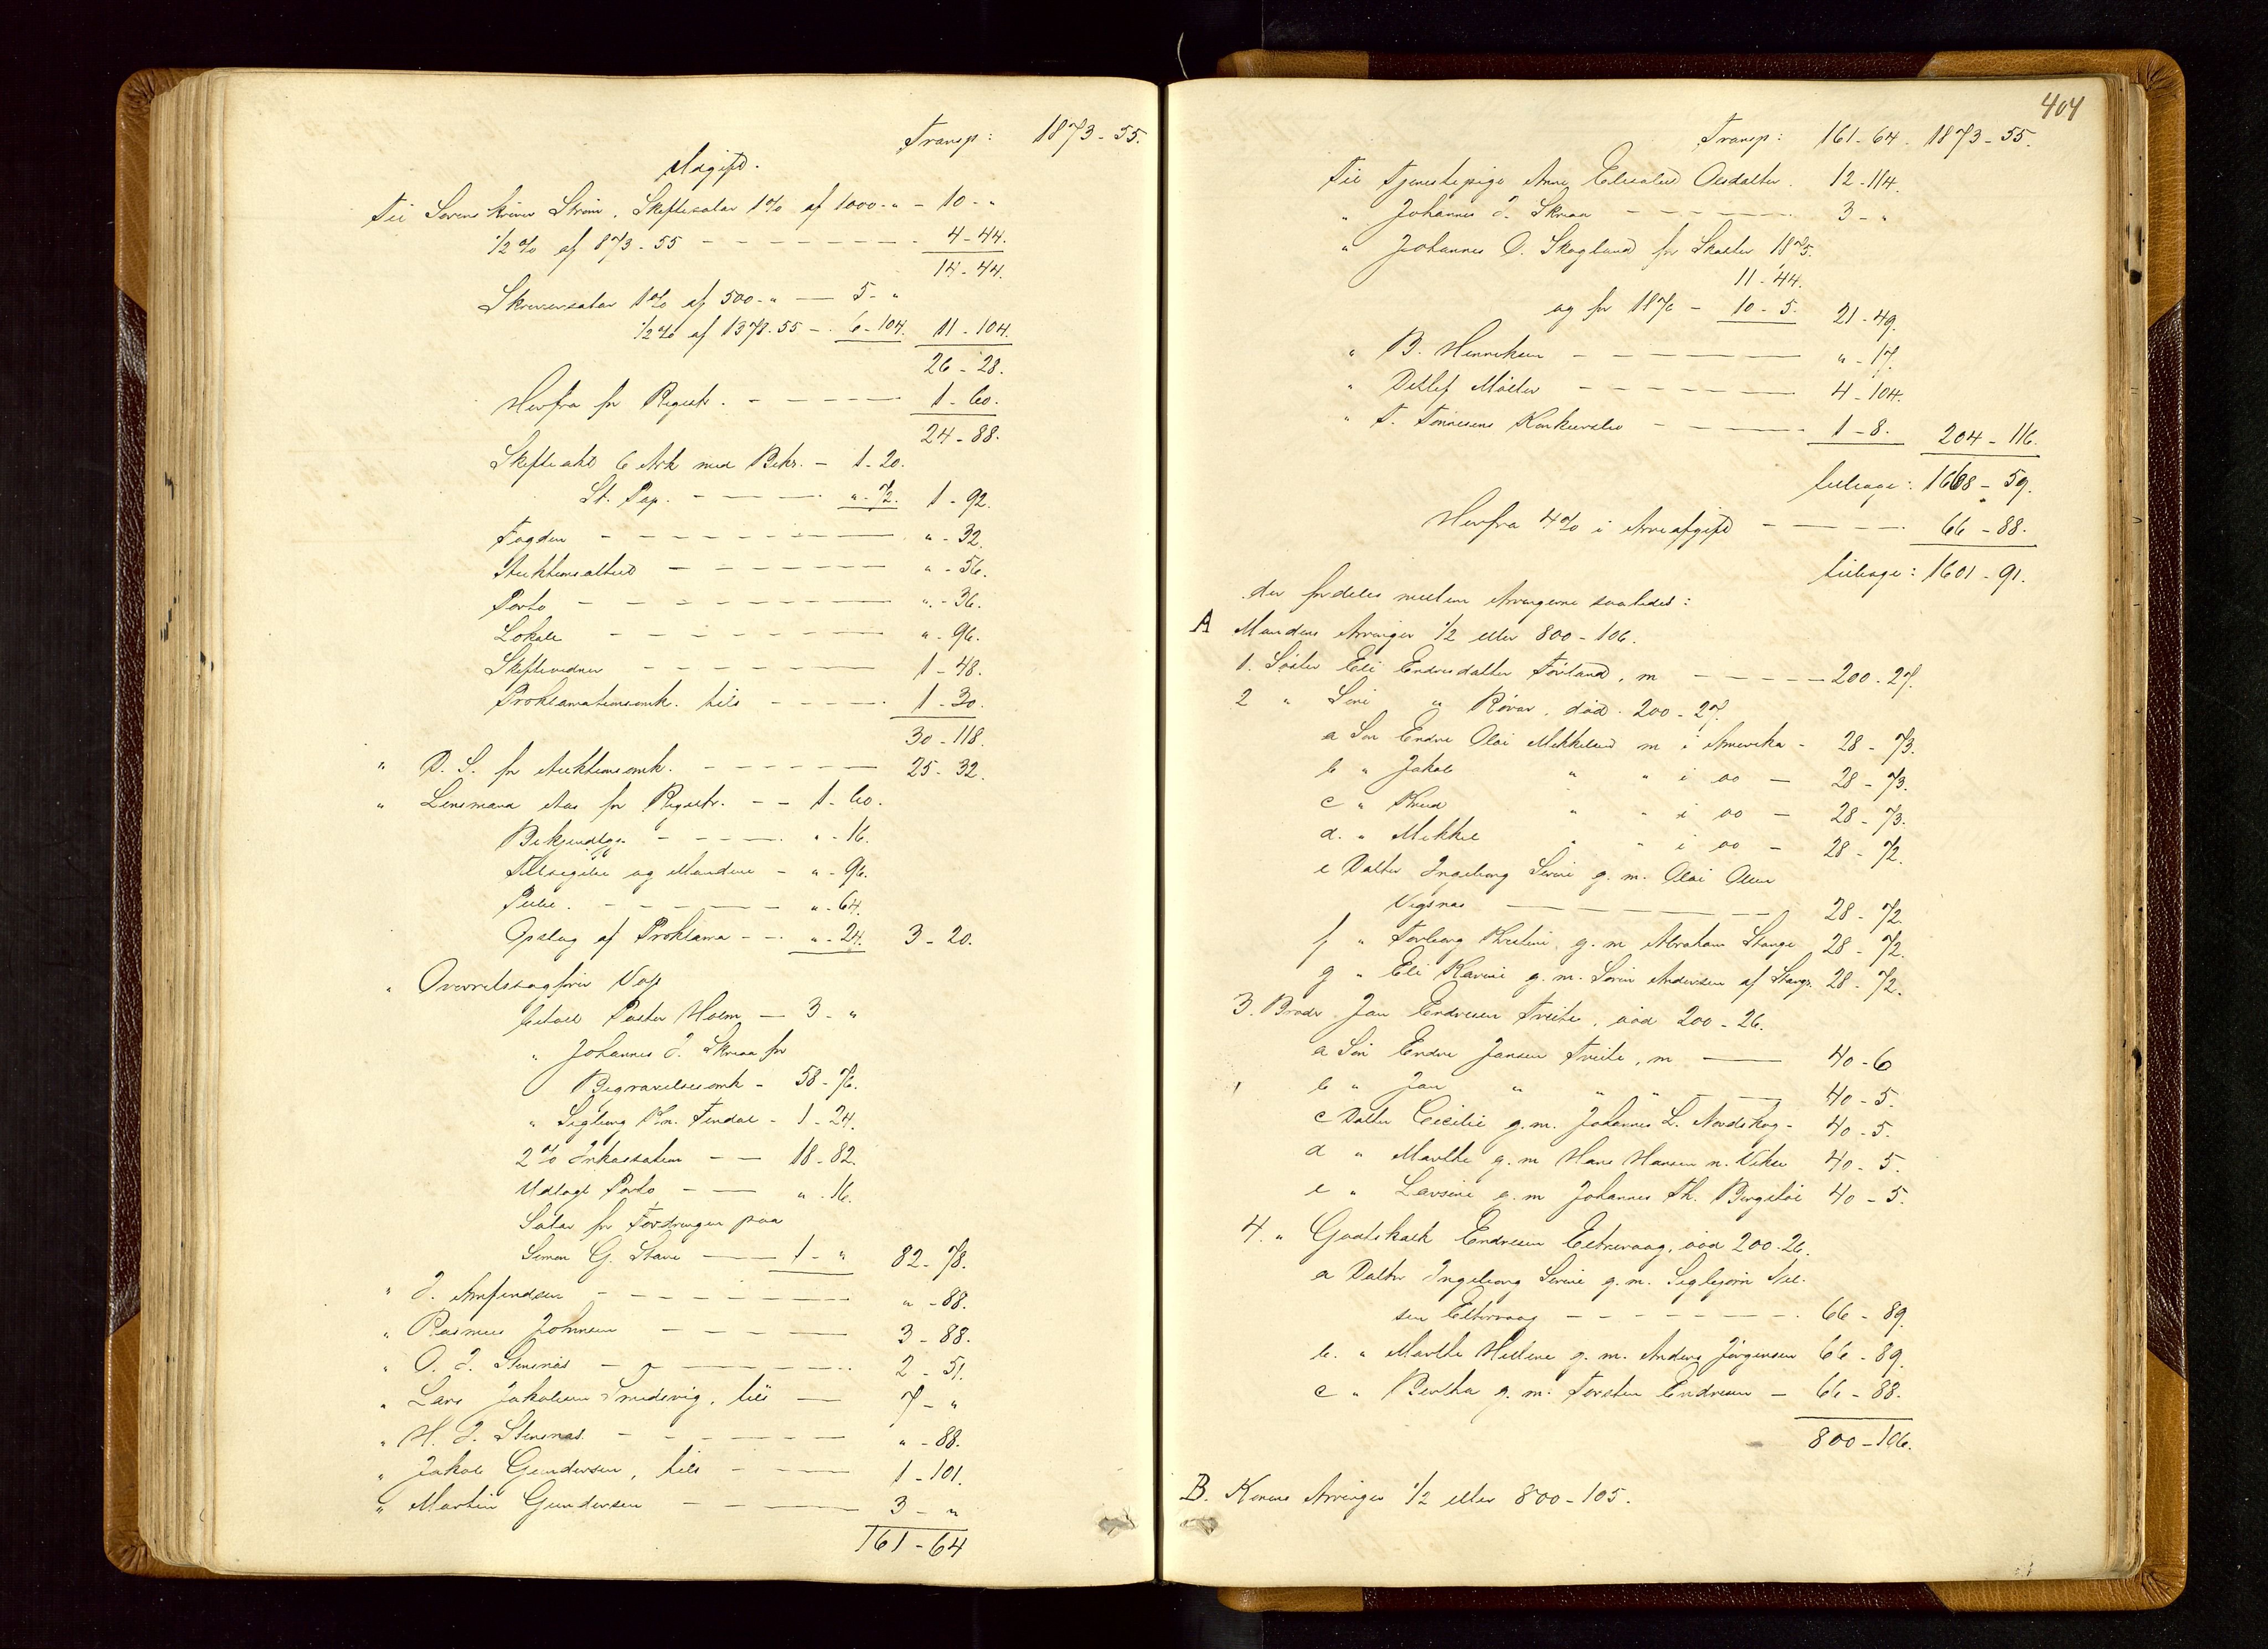 Transp: 1873-55.
Udgift.
Til Sorenskriver Strøm, Skiftesalær 1% af 1000-" - 10-"
1/2% af 873-55 - 4-44.
14-44.
Skriversalær 1% af 500-" - 5-"
1/2% af 1373-55 - 6-104. 11-104.
26-28.
Herfra for Registr. - 1-60.
24-88.
Skifteakt 6 Ark med Bekr. - 1-20.
St. Pap. - "-72. 1-92.
Fogden - "-32.
Auktionsattest - "-56.
Porto - "-36.
Lokale - "-96.
Skiftevidner - 1-48.
Proklamationsomk. tils - 1-30.
30-118.
" D. S. for Auktionsomk. - 25-32.
" Lensmand Aas for Registr. - 1-60.
Bekjendtgj. - "-16.
Tilsigelse og Mændene - "-96.
Pleie. - "-64.
Opslag af Proklama - "-24. 3-20.
" Overretssagfører Vogt
betalt Pastor Holm - 3-"
" Johannes J. Skraa for
Begravelsesomk - 58-76.
" Sigbjørg Knn. Tindal - 1-24.
2% Inkassation - 18-82.
Udlagt Porto - "-16.
Salær for Fordringen paa
Simon G. Stave - 1-" 82-78.
" J. Amfindsen - "-88.
" Rasmus Johnsen - 3-88.
" O. J. Stensnæs - 2-51.
" Lars Jakobsen Smedsvig, tils - 7-"
" H. J. Stensnæs. - "-88.
" Jakob Gundersen, tils - 1-101.
" Martin Gundersen - 3-"
161-64
404
Transp: 161-64. 1873-55.
Til Tjenestepige Anne Elisabet Olsdatter. 12-114.
" Johannes J. Skraa - 3-"
" Johannes O. Skogland for Skatter 1875.
11-44.
og for 1876 - 10-5. 21-49.
" B. Henriksen - "-17.
" Detlef Møller - 4-104.
" T. Tønnesens Konkursbo - 1-8. 204-116.
tilbage: 1668-59.
Herfra 4% i Arveafgift - 66-88.
tilbage: 1601-91.
der fordeles mellem Arvingerne saaledes:
A Mandens Arvinger 1/2 eller 800-106.
1. Søster Eli Endresdatter Førland, m - 200-27.
2 " Siri " Røvær, død. 200-27.
a Søn Endre Olai Mikkelsen m i Amerika - 28-73.
b " Jakob " " i do - 28-73.
c " Knud " " i do - 28-73.
d. " Mikkel " " i do - 28-72.
e Datter Ingeborg Serine g. m. Olai Olsen
Vigsnæs - 28-72.
f " Torborg Kristine g. m Abraham Stange 28-72.
g " Eli Karine g. m. Søren Andersen af Stavgr. 28-72.
3. Broder Jan Endresen Tveite, død 200-26.
a Søn Endre Jansen Tveite, m - 40-6
b " Jan " " " - 40-5.
c Datter Cecilie g. m. Johannes L. Nordskog - 40-5.
d " Marthe g. m Hans Hansen n. Vikse 40-5.
e " Lavsine g. m Johannes Th. Bergstøl 40-5.
4. " Godtskalk Endresen Eltrevaag, død 200-26.
a Datter Ingeborg Serine g. m. Sigbjørn Nil-
sen Eltrevaag - 66-89.
b. " Marthe Helene g. m. Anders Jørgensen 66-89.
c " Bertha g. m. Torsten Endresen - 66-88.
800-106.
B. Konens Arvinger 1/2 eller 800-105.